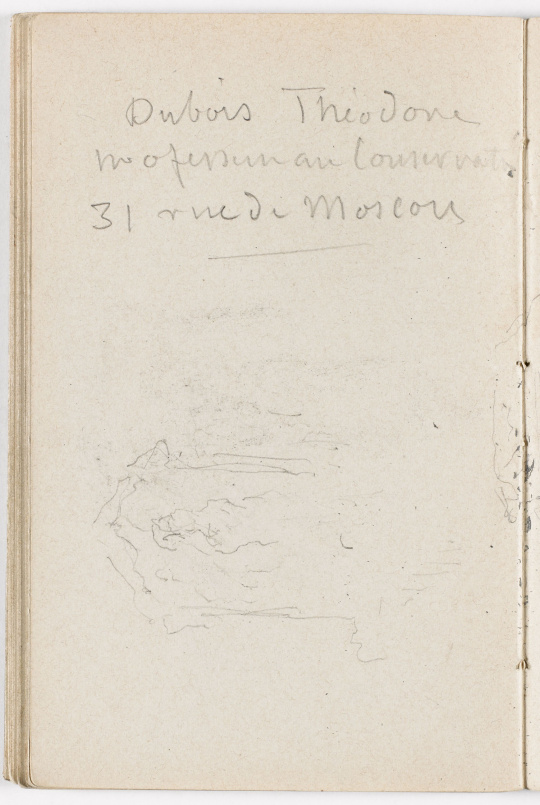 Dubois Théodore
professeur au Conservat
31 rue de Moscou